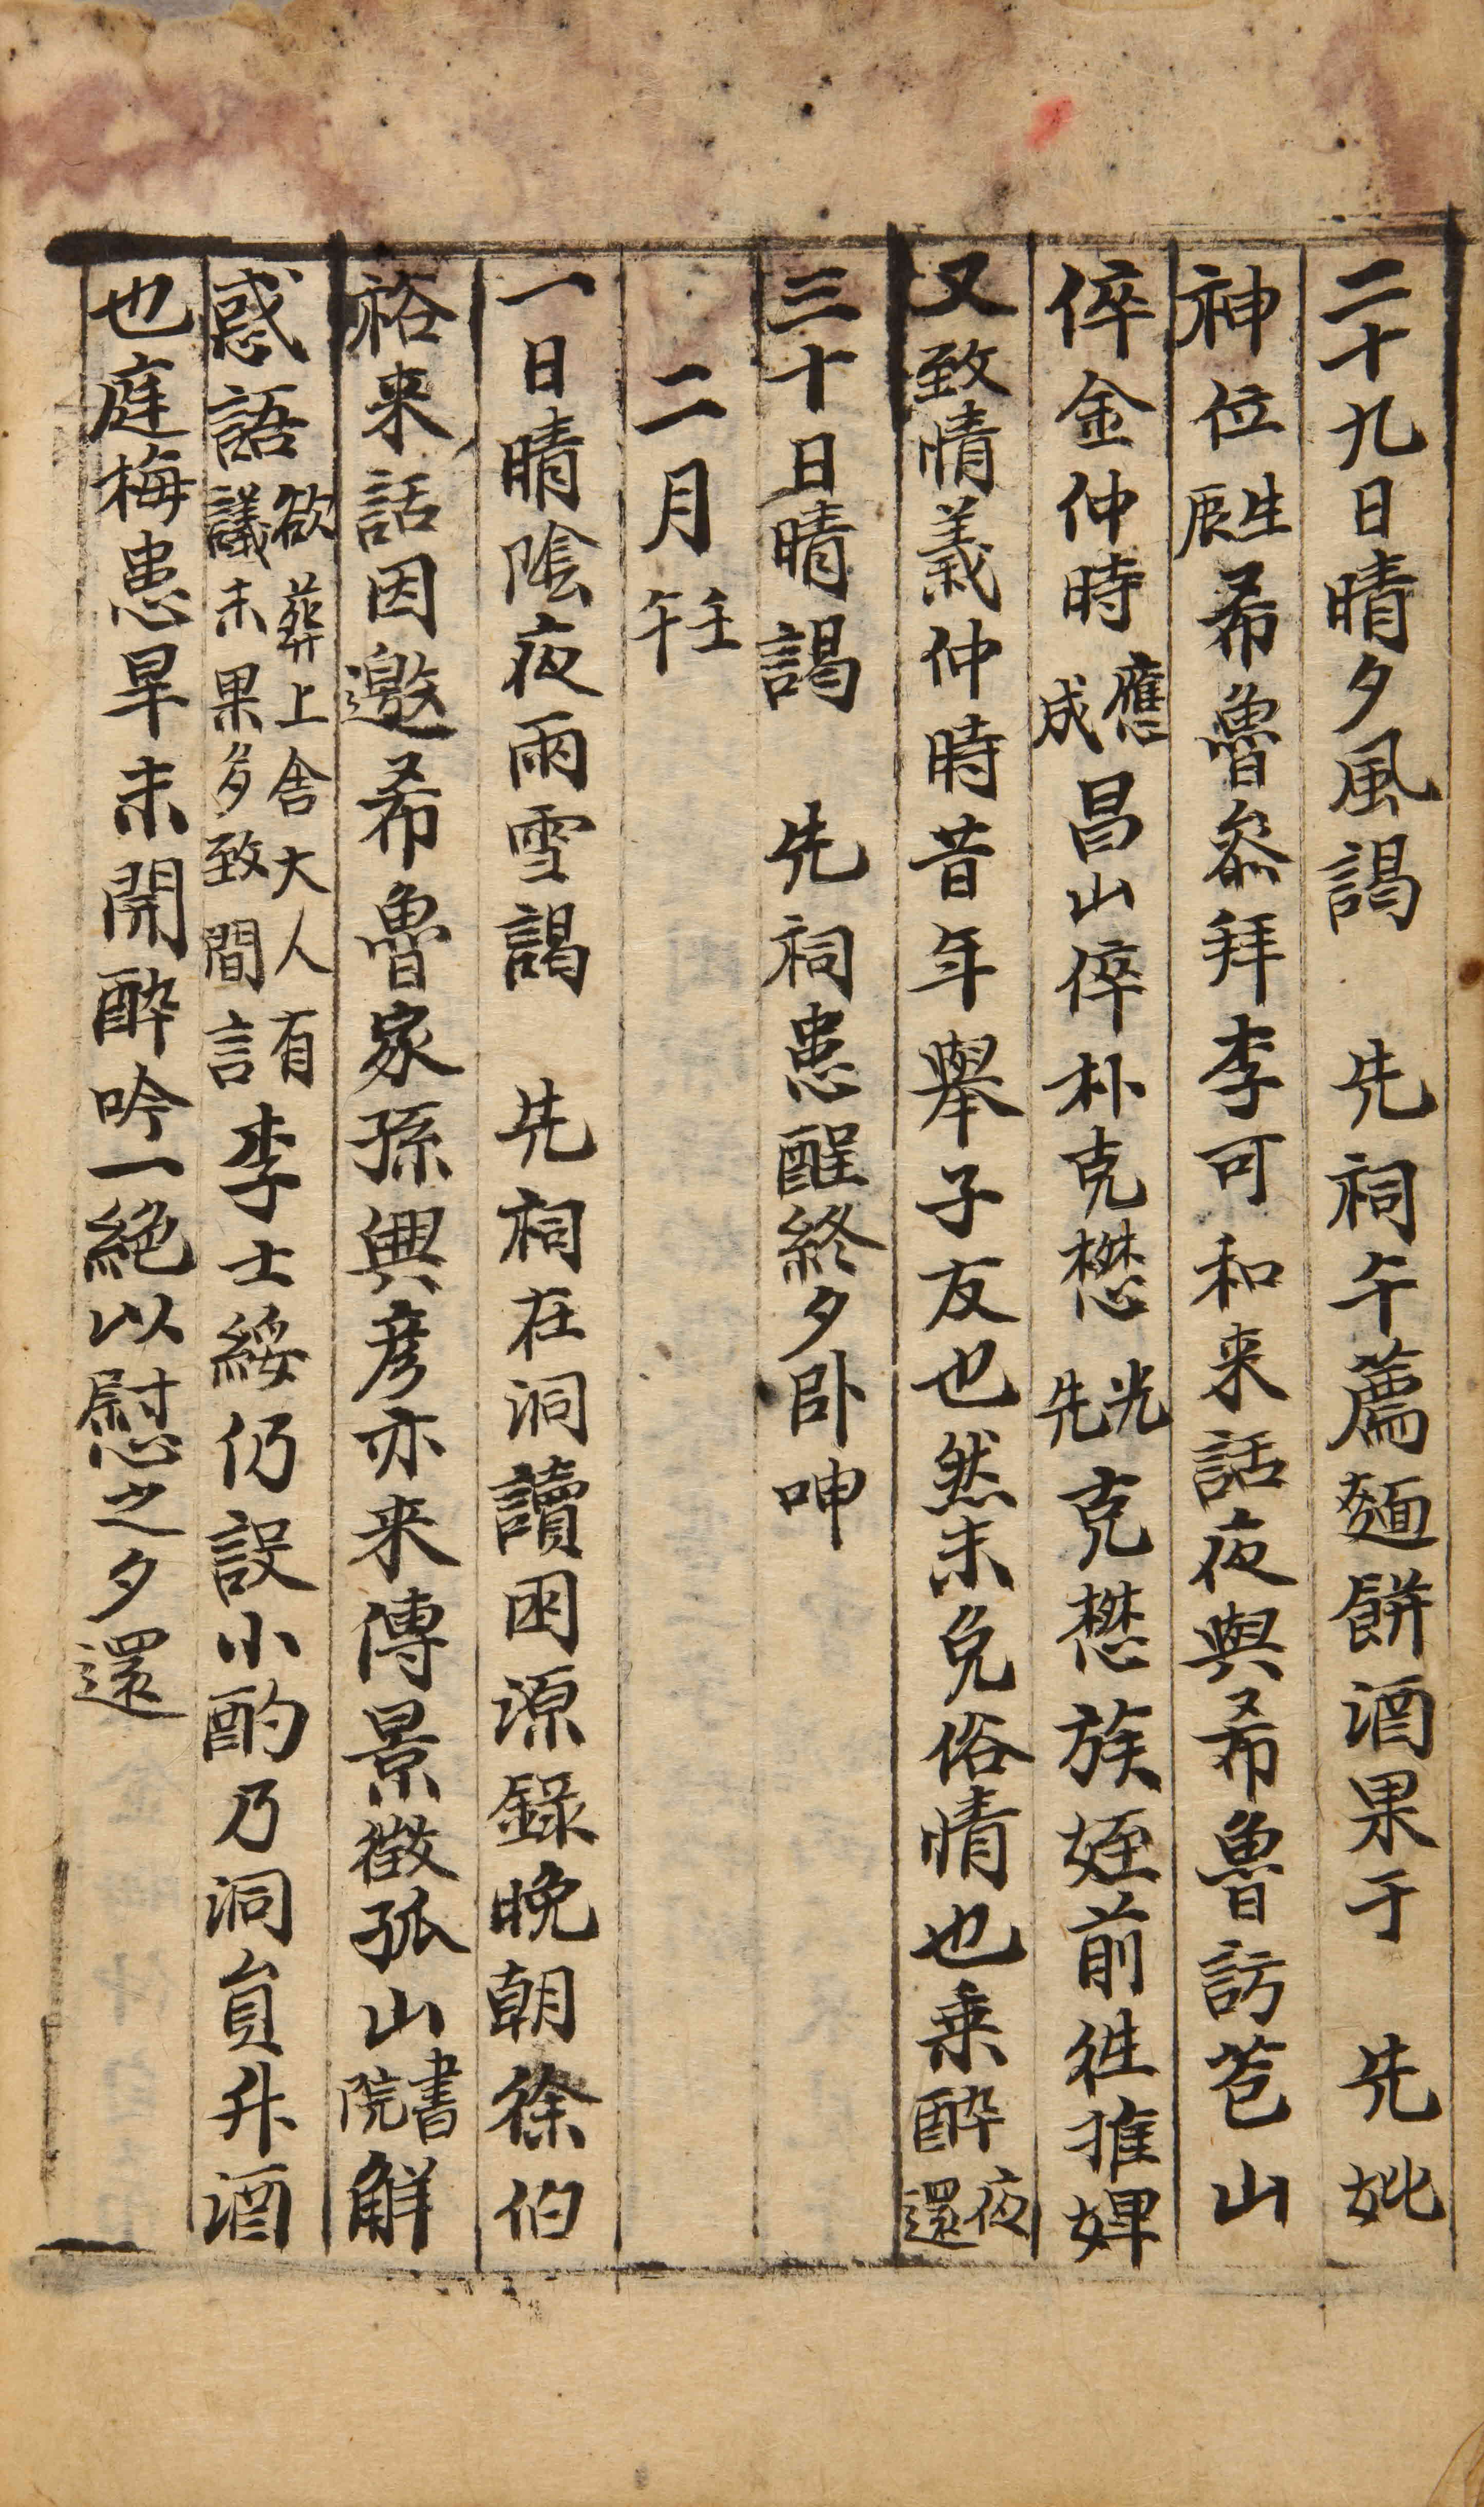 二十九日晴夕風謁　先祠午薦麵餅酒果于　先妣
神位生辰希魯叅拜李可和来話夜與希魯訪苍山
倅金仲時應成昌山倅朴克懋光先克懋族姪前徃推婢
又致情義仲時昔年舉子友也然未免俗情也乗醉夜還
三十日晴謁　先祠患酲終夕卧呻
二月壬午
一日晴陰夜雨雪謁　先祠在洞讀困源錄晚朝徐伯
裕来話因邀希魯家孫興彦亦来傳景徵孤山書院解
惑語欲葬上舍大人有議未果多致間言李士綏仍設小酌乃洞員升酒
也庭梅患旱未開醉吟一絶以慰之夕還